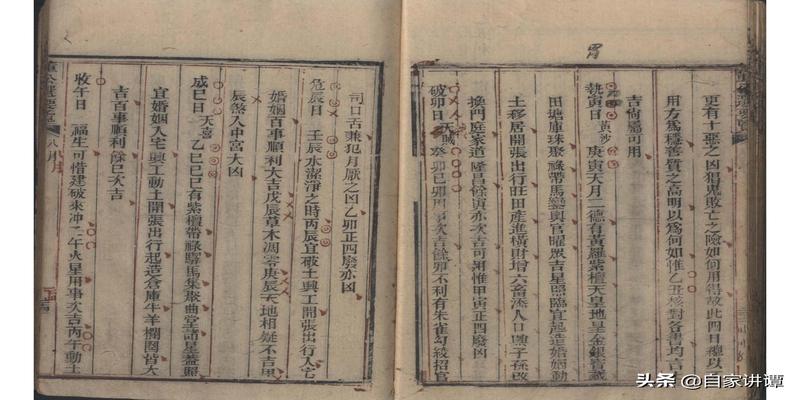 胃
更有十惡之凶狽鬼敗亡之險如何用得故此四日總以
用方爲穩善質之高明以爲何如惟乙丑核對各書均言
吉尚屬可用
執寅日 黃沙 庚寅天月二德有黃羅紫檀天皇地皇金銀寶藏
田塘庫珠聚祿帶馬變與官曜眾吉星照臨宜起造婚姻動
土移居開張出行旺田產進橫財增六畜添人口興子孫改
換門庭家道隆昌餘寅亦次吉可用惟甲寅正四廢凶
破卯日 天賊 癸卯己卯用事次吉餘卯不利有朱雀勾絞招官
司口舌兼犯月厭之凶乙卯正四廢亦凶
危辰日 壬辰水潔淨之時丙辰宜破土興工開張出行入宅
婚姻百事順利大吉戊辰草木凋零庚辰天地相疑不吉甲
辰煞入中宮大凶
成巳日 天喜 乙巳己巳有紫檀帶祿驛馬集聚曲堂諸星蓋照
宜婚姻入宅興工動土開張出行起造倉庫牛羊欄圈皆大
吉百事順利餘巳次吉
收午日 福生可惜建破來冲二午火星用事次吉丙午動土
董公選要覽 八月
头条 @自家讲谭